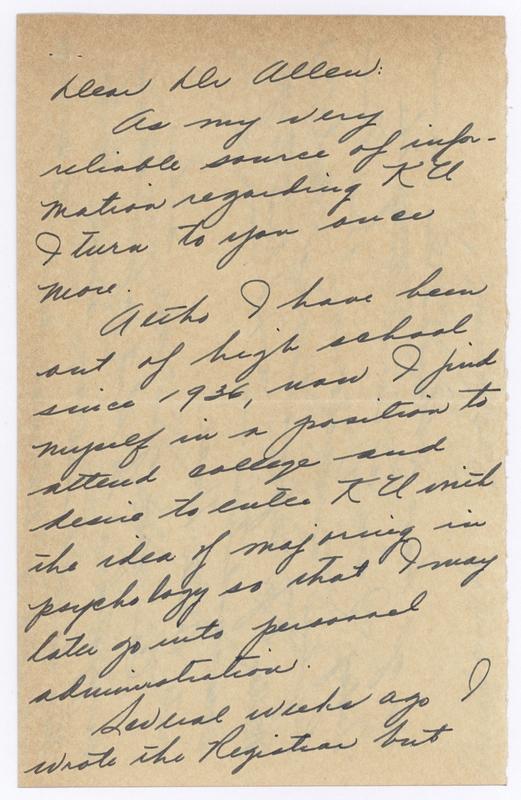 Dear Dr Allen:
As my very
reliable source of infor-
mation regarding KU
I turn to you once
more.
Altho I have been
out of high school
since 1936, now I find
myself in a position to
attend college and
desire to enter KU with
the idea of majoring in
psychology so that I may
later go into personnel
administration.
Several weeks ago I
wrote the Registrar but